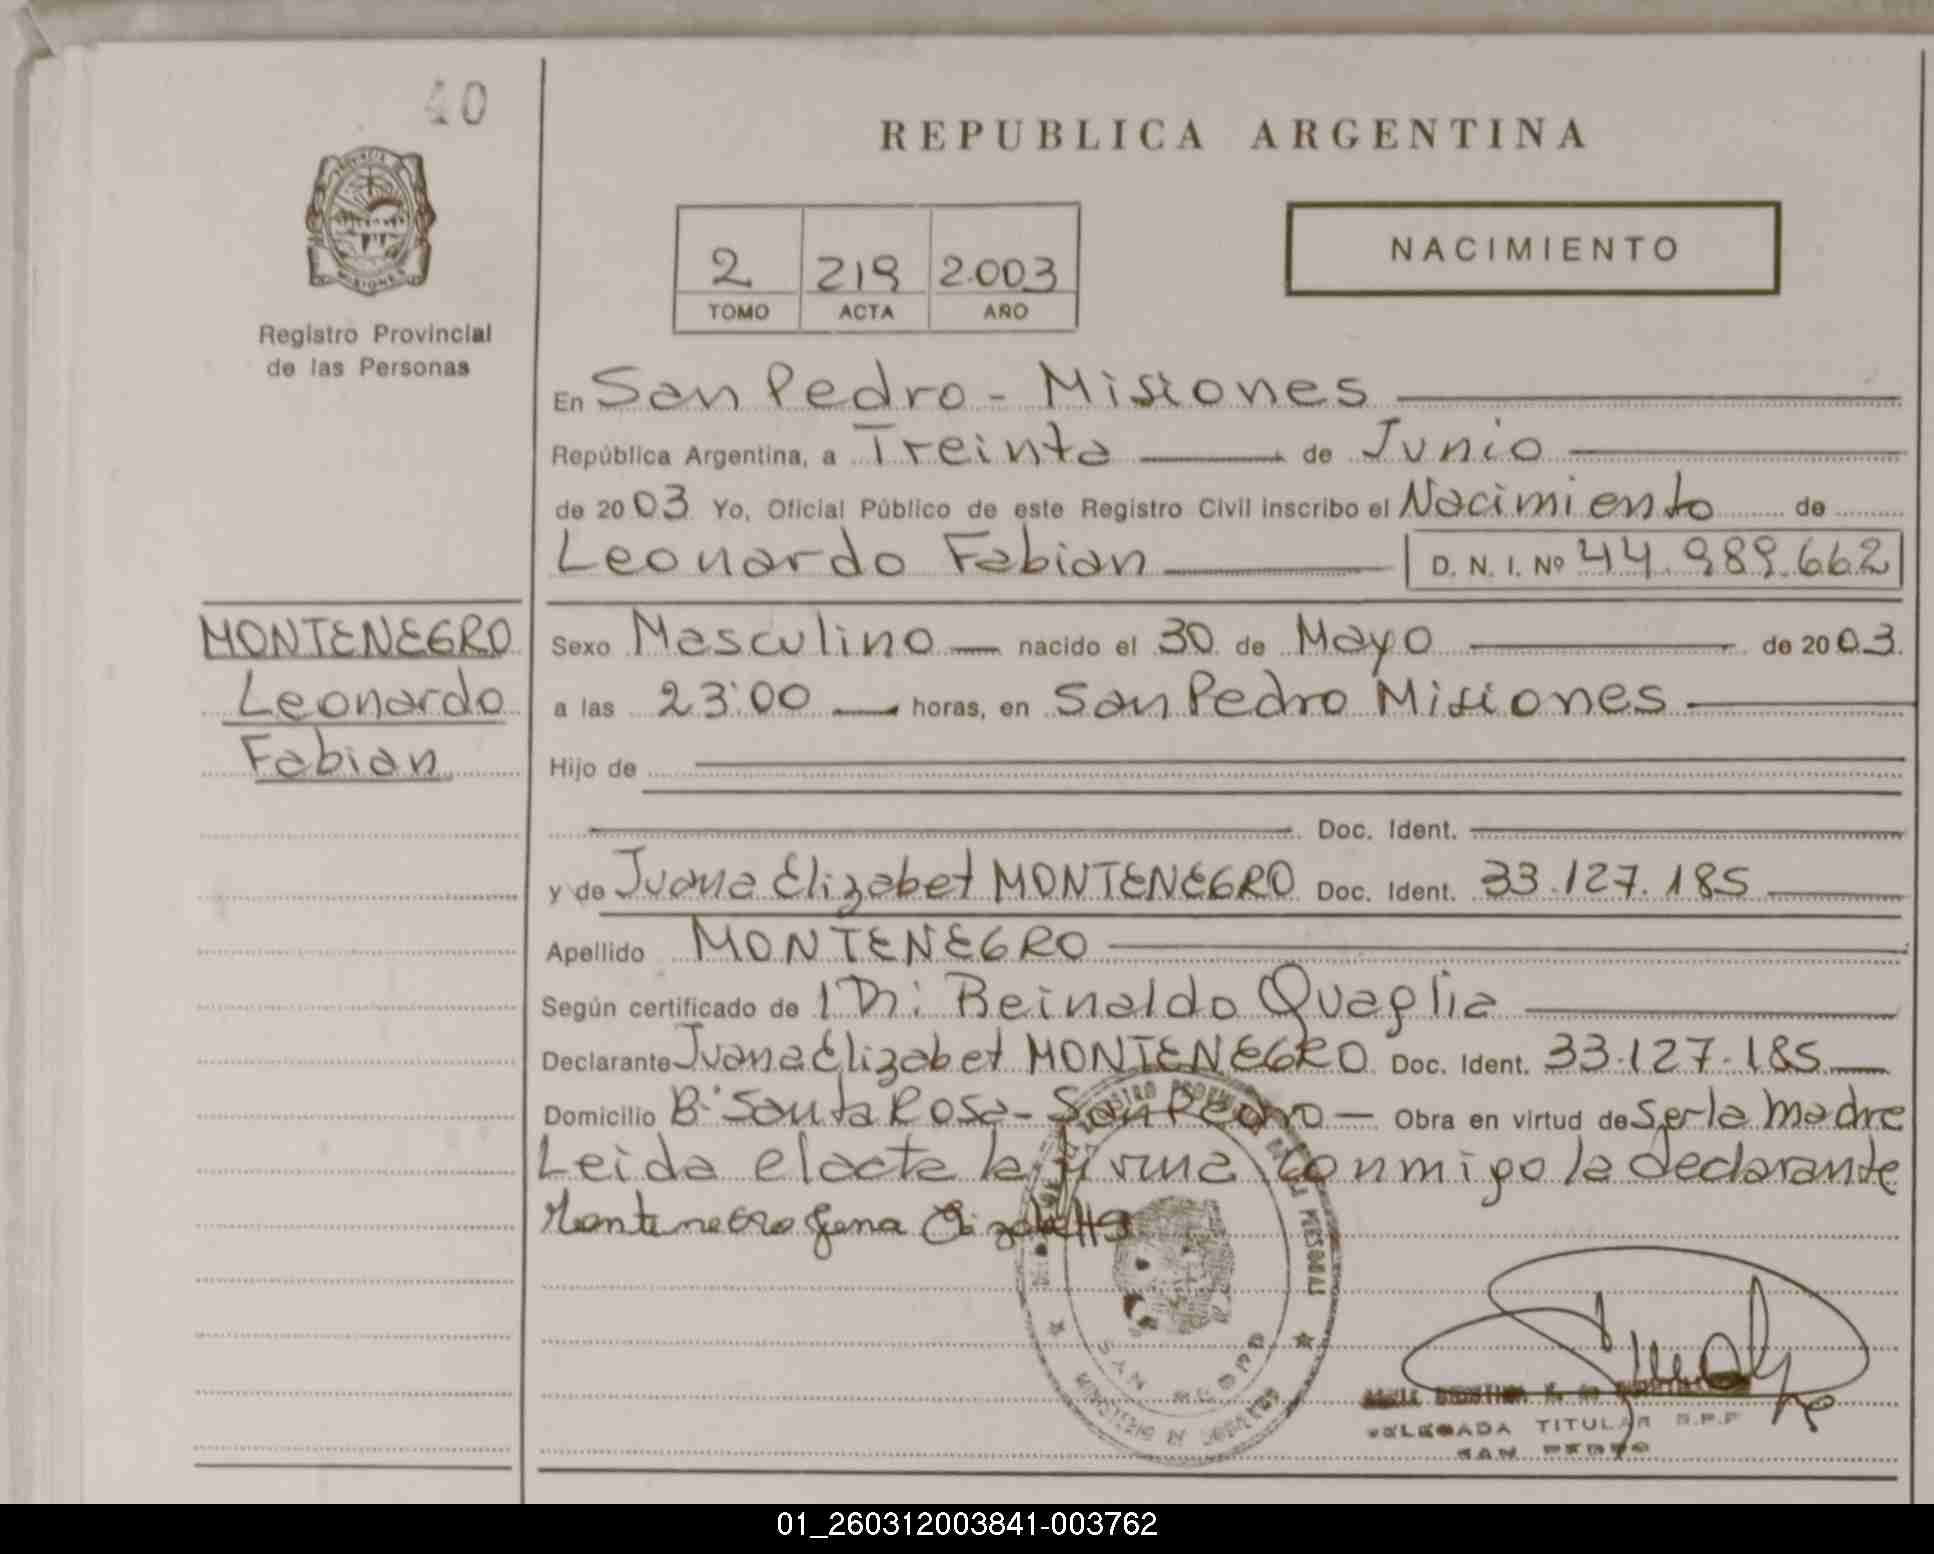 40
REPUBLICA ARGENTINA
PROVINCIA DE MISIONES
Registro Provincial
de las Personas
2 219 2.003
TOMO ACTA AÑO
NACIMIENTO
En San Pedro - Misiones
República Argentina, a Treinta de Junio
de 2003 Yo, Oficial Público de este Registro Civil inscribo el Nacimiento de
Leonardo Fabian D. N. I. Nº 44.989.662
MONTENEGRO
Leonardo
Fabian
Sexo Masculino nacido el 30 de Mayo de 2003.
a las 23:00 horas, en San Pedro Misiones
Hijo de
Doc. Ident.
y de Juana Elizabet MONTENEGRO Doc. Ident. 33.127.185
Apellido MONTENEGRO
Según certificado de Beinaldo Quaglia
Declarante Juana Elizabet MONTENEGRO Doc. Ident. 33.127.185
Domicilio B.º Santa Rosa - San Pedro - Obra en virtud de Ser la Madre
Leida el acta la firma conmigo la declarante
Montenegro
SAN PEDRO
DELEGADA TITULAR R.P.P
SAN PEDRO
01_260312003841-003762